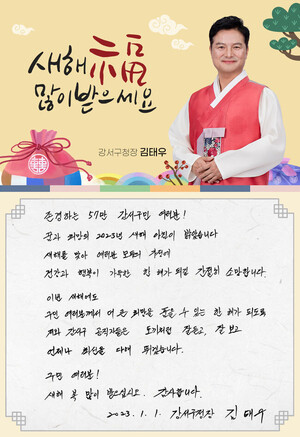 새해 福
많이받으세요
강서구청장 김태우
존경하는 57만 강서구민 여러분!
꿈과 희망의 2023년 새해 아침이 밝았습니다
새해를 맞아 여러분 모두의 가정에
건강과 행복이 가득한 한 해가 되길 간절히 소망합니다.
이번 새해에도
구민 여러분께서 더 큰 희망을 품을 수 있는 한 해가 되도록
저와 강서구 공직자들은 토끼처럼 잘 듣고, 잘 보고
언제나 최선을 다해 뛰겠습니다.
구민 여러분!
새해 복 많이 받으십시오. 감사합니다.
2023. 1. 1. 강서구청장 김태우